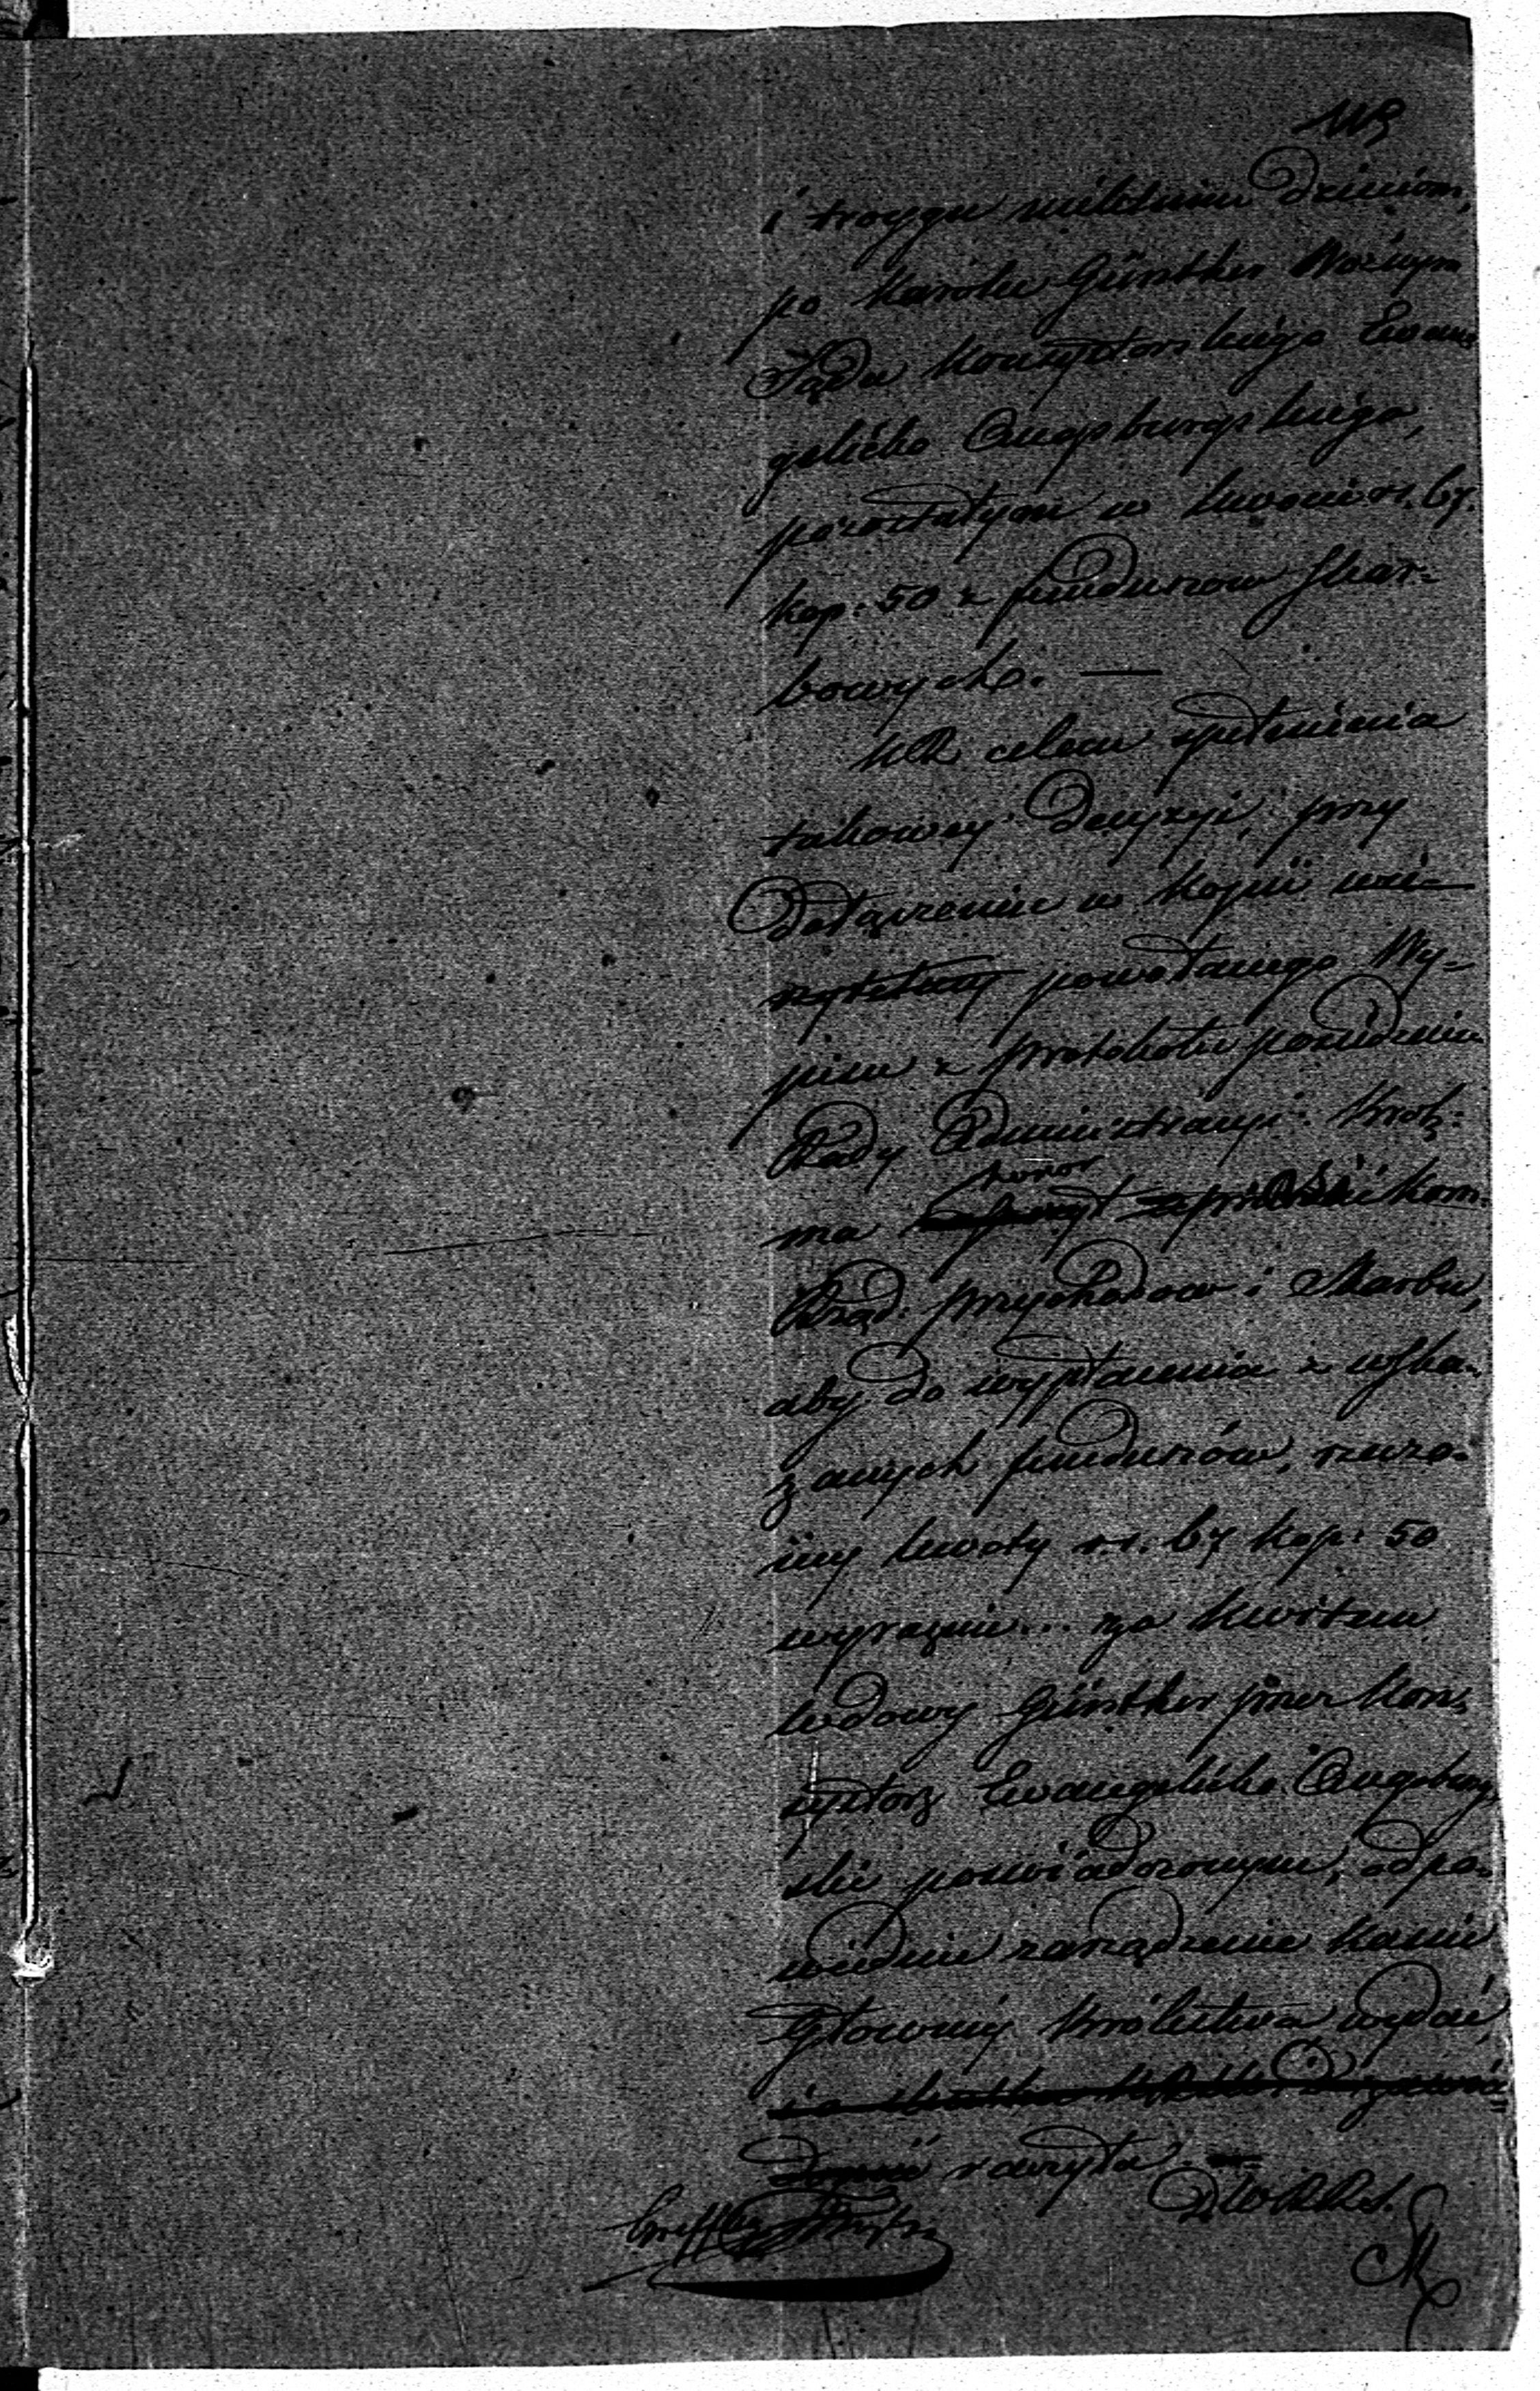 i troygu nieletnim Dzieciom,
po Karolu Günther Woźnym
Sądu Konsystorskiego Ewan-
gelicko Augsburgskiego,
pozostałym w kwocie rs. 67.
kop: 50 z funduszów skar-
bowych. —
celem spełnienia
takowey Decyzyi, przy
Dołączeniu w kopii
powołanego Wy-
pisu z protokołu posiedzenia
Rady Administracyi: Król:
ma honor Kom:
Rząd: przychodów i Skarbu,
aby do wypłacenia z wska-
zanych funduszów, rzeczo-
ney kwoty rs. 67 kop: 50
wyraźnie... za kwitem
wdowy Günther przez Kon-
systorz Ewangelicko Augsburg-
skie poswiadczonym, odpo-
wiednie zarządzenie Kassie
Głównéy Królestwa wydać
raczyła. —